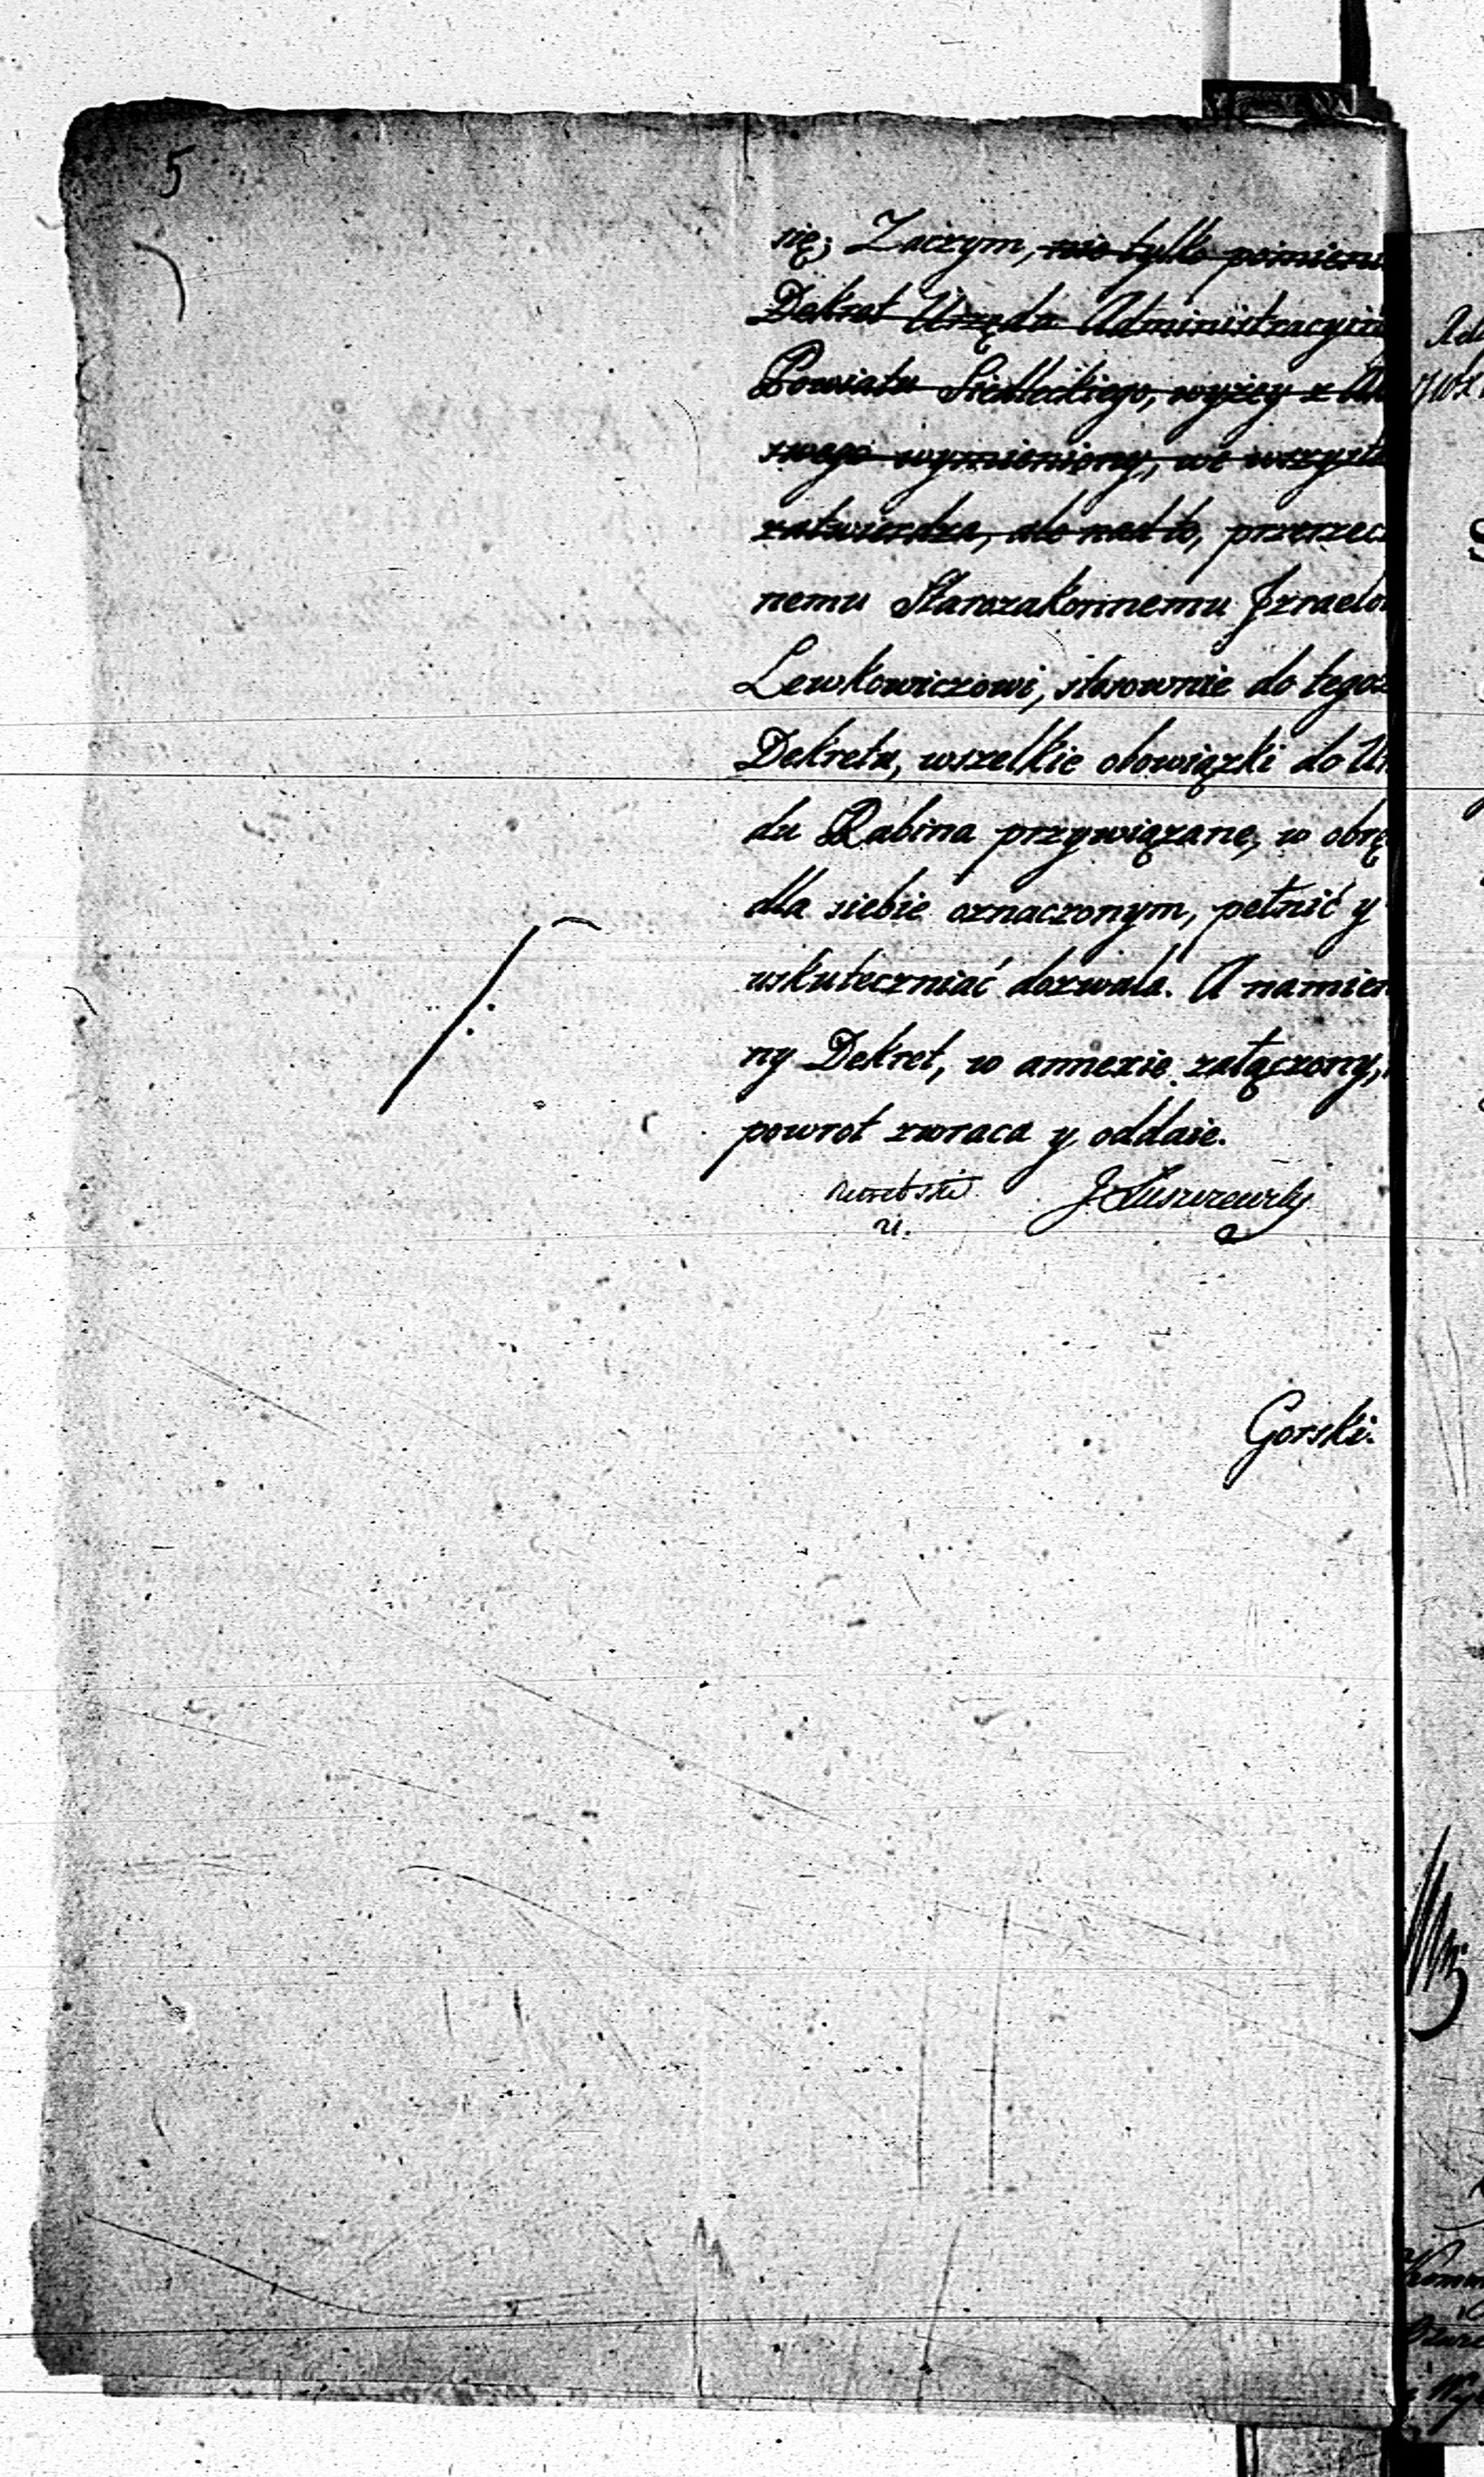 5
się; Zaczym, nie tylko pomienio
Dekret Urzędu Administracyin
Powiatu Siedleckiego, wyżey z
swego wymieniony, we wszystk
zatwierdza, ale nad to, przerzec
nemu Starozakonnemu Jzraelo
Lewkowiczowi, stosownie do tegoż
Dekretu, wszelkie obowiązki do Ur
du Rabina przywiązane, w obrę
dla siebie oznaczonym, pełnić y
uskuteczniać dozwala. A namien
ny Dekret, w annexie załączony,
powrot zwraca y oddaie.
J Łuszczewsky
Gorski.